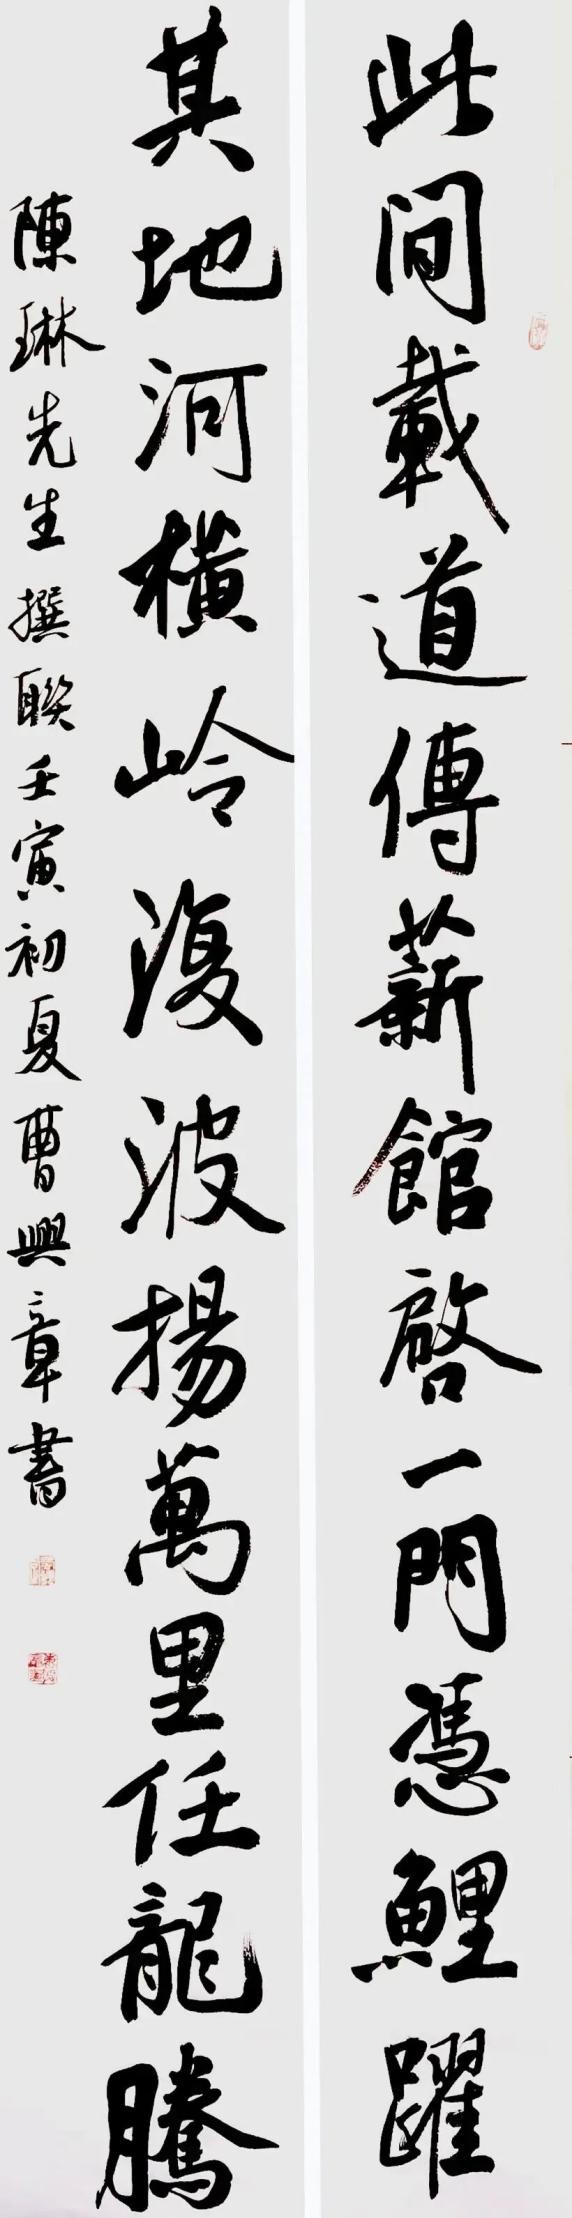 此間載道傳薪館啓一門憑鯉躍
其地河橫嶺復波揚萬里任龍騰
陳琳先生撰聯壬寅初夏曹興章書